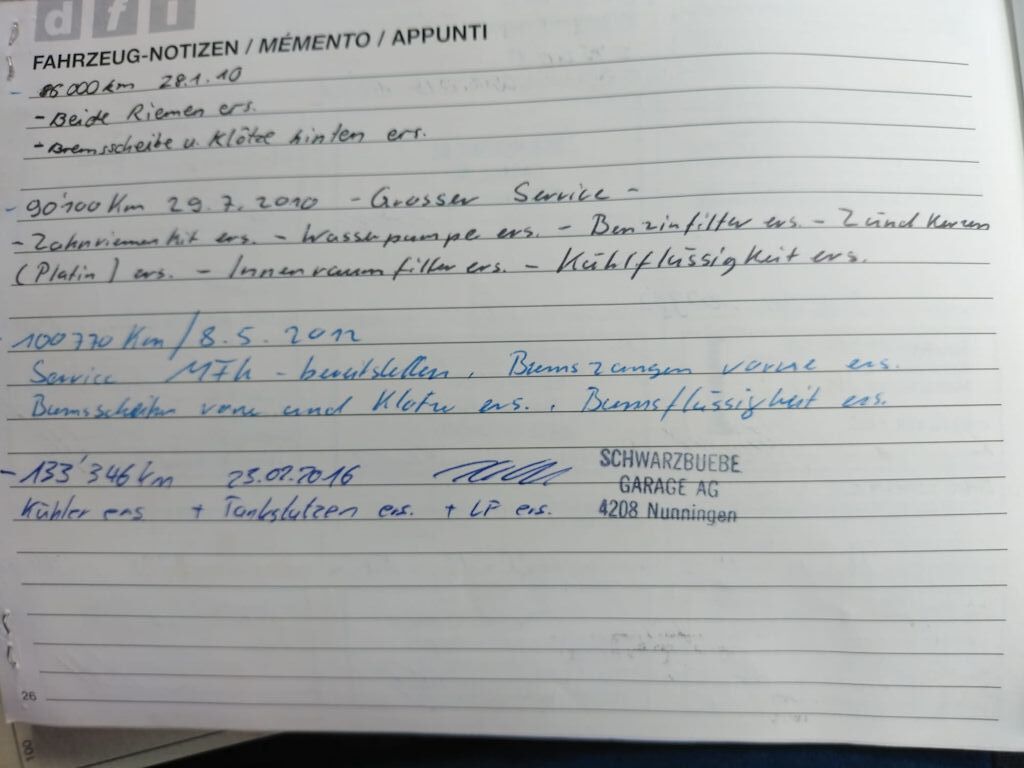 d f i
FAHRZEUG-NOTIZEN / MÉMENTO / APPUNTI
000 km 28.1.10
- Beide Riemen ers.
- Bremsscheibe u. Klötze hinten ers.
- 90'100 Km 29.7.2010 - Grosser Service -
- Zahnriemenkit ers. - Wasserpumpe ers. - Benzinfilter ers. - Zündkerzen
(Platin) ers. - Innenraumfilter ers. - Kühlflüssigkeit ers.
- 100770 Km / 8.5.2012
Service MFK - bereitstellen, Bremszangen vorne ers.
Bremsscheiben vorne und Klötze ers., Bremsflüssigkeit ers.
- 133'346 km 23.02.2016
SCHWARZBUEBE
GARAGE AG
4208 Nunningen
Kühler ers. + Tankstutzen ers. + ers.
26
100